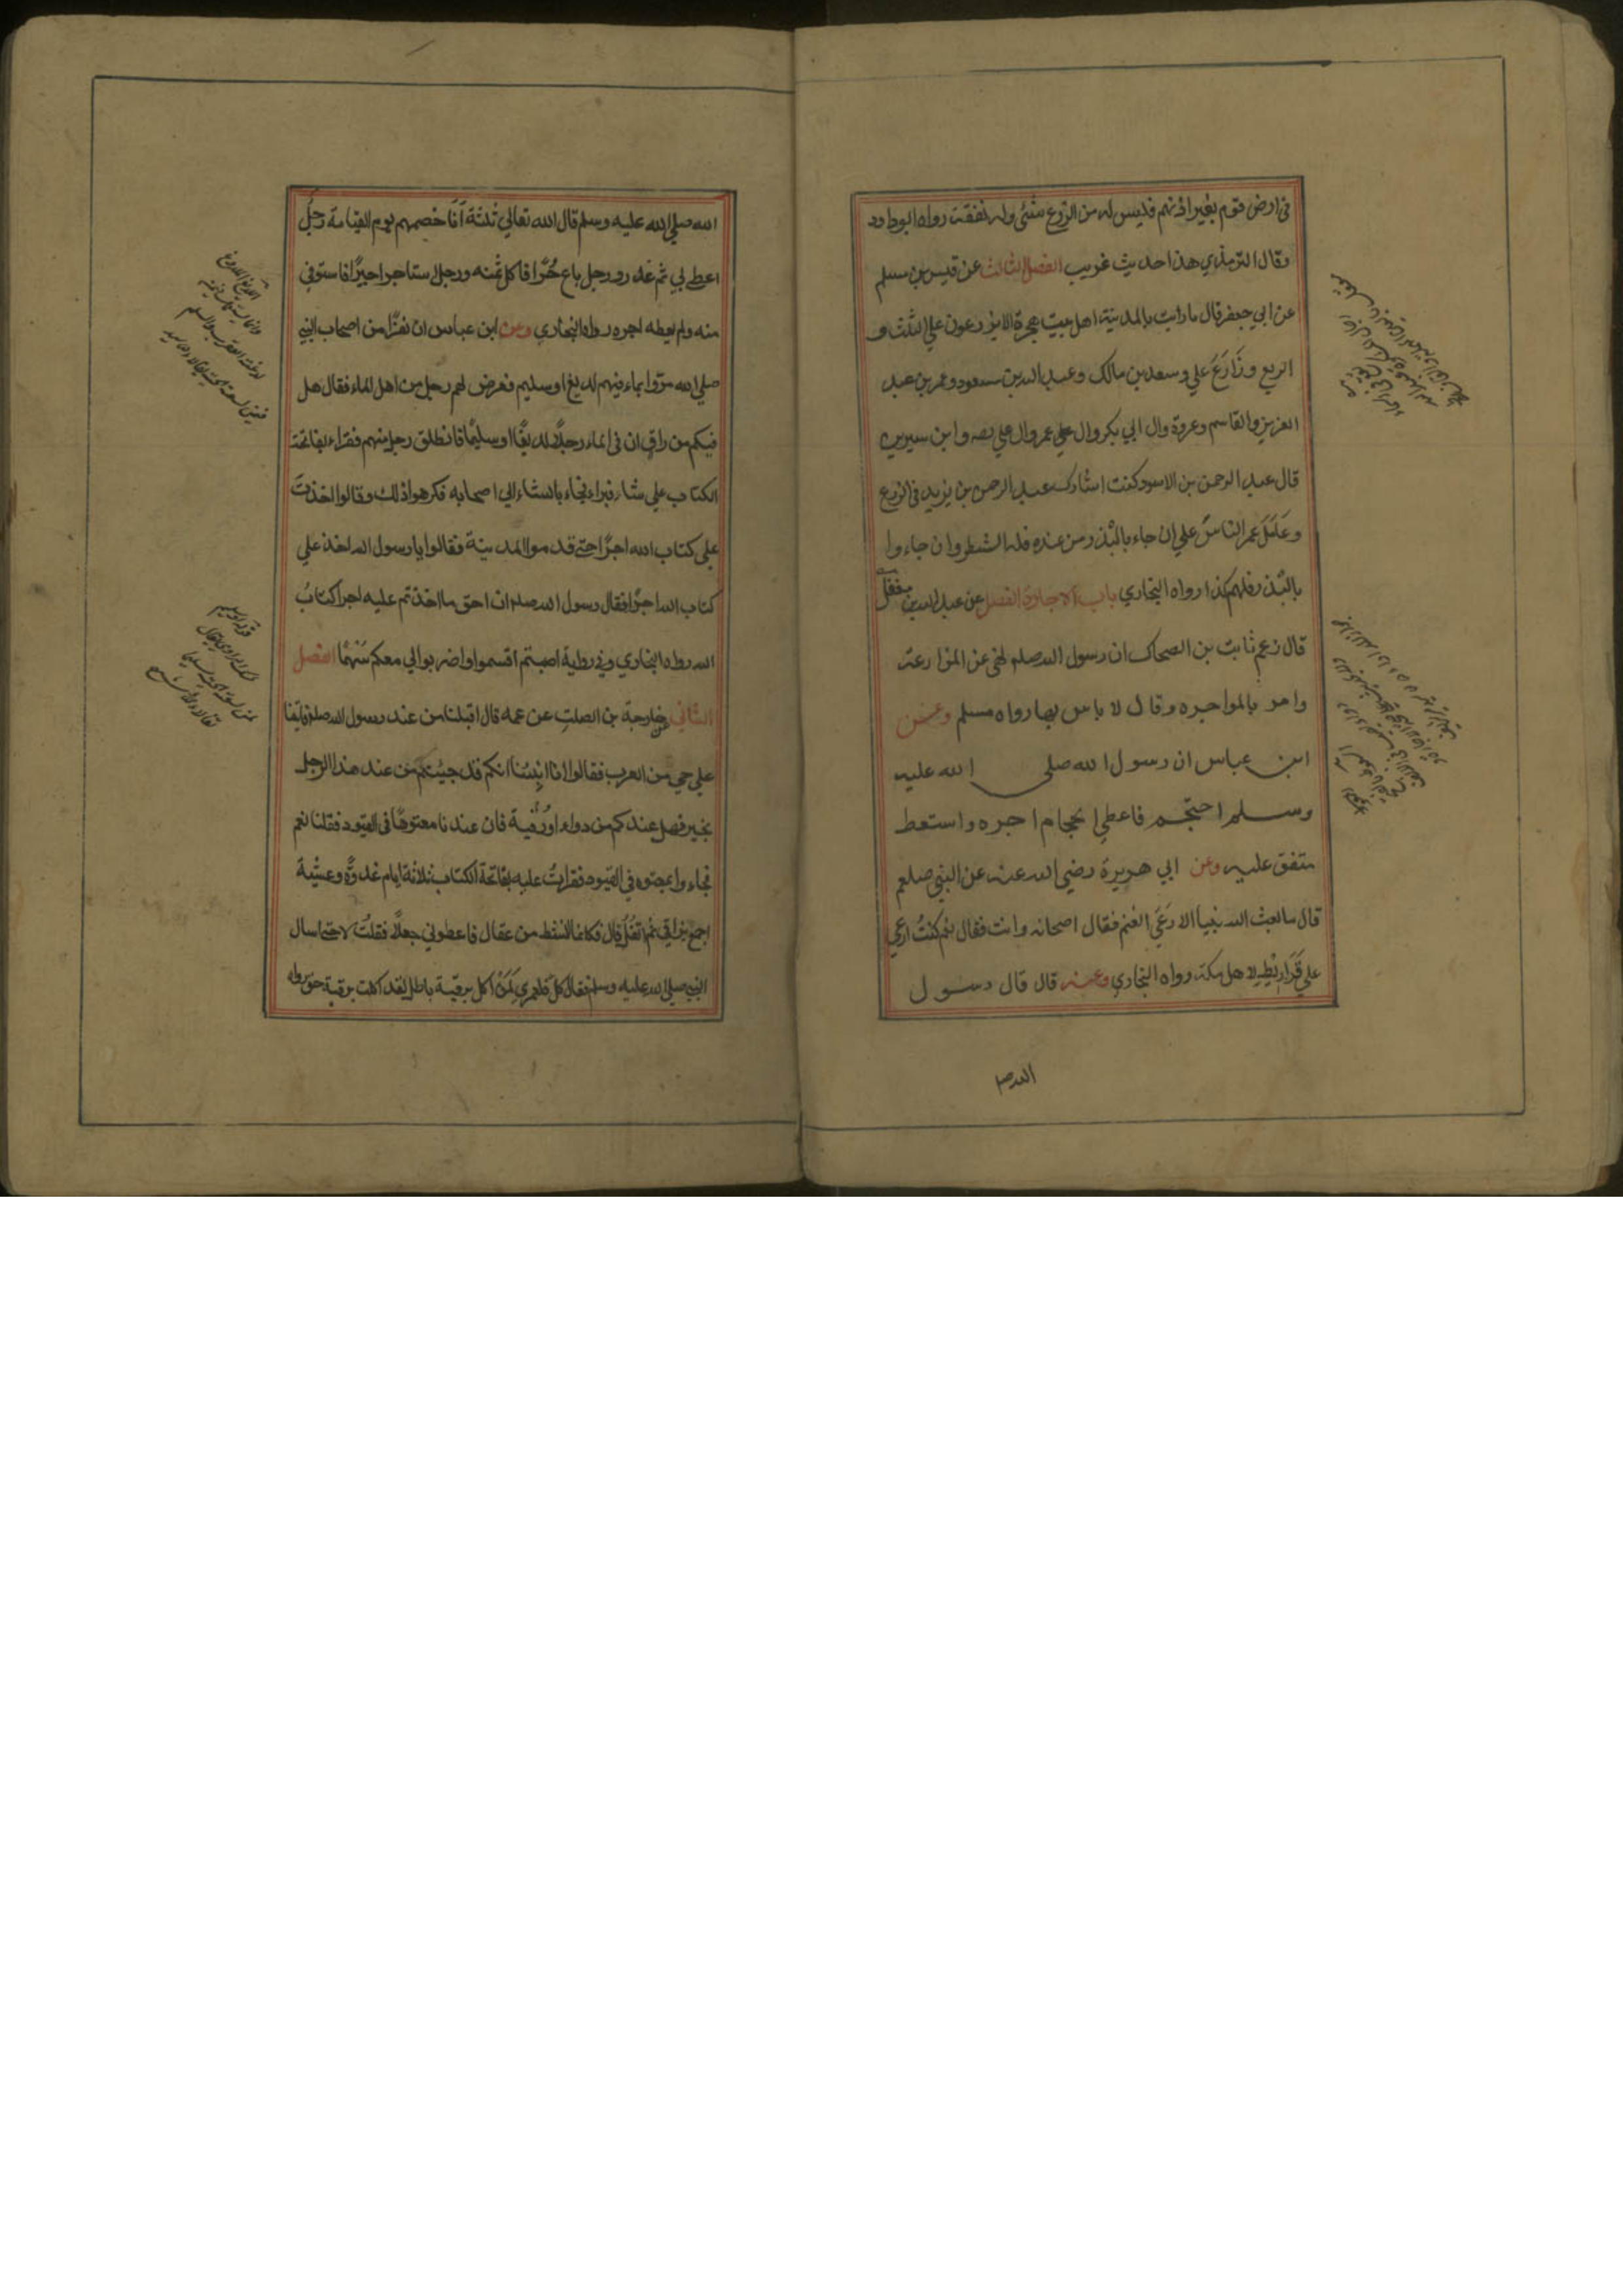 في ارض قوم بغير اذنهم فليس له من الزرع شئ وله نفقته رواه ابو داود
وقال الترمذي هذا حديث غريب الفصل الثالث عن قيس بن مسلم
عن ابي جعفر قال ما رايت بالمدينة اهل بيت هجرة الا يزرعون علي الثلث و
الربع وزَارَعَ علي وسعد بن مالك وعبد الله بن مسعود وعمر بن عبد
العزيز والقاسم وعروة وال ابي بكر وال عمر وال علي وابن سيرين
قال عبد الرحمن بن الاسود كنت اشارك عبد الرحمن بن يزيد في الزرع
وعَامَلَ عمر الناسَ علي ان جاء بالبذر من عنده فله الشطر وان جاءوا
بالبذر فلهم كذا رواه البخاري باب الاجارة الفصل عن عبد الله بن مغفل
قال زعم ثابت بن الضحاك ان رسول الله صلم نهي عن المزارعة
وامر بالمواجره وقال لا باس بها رواه مسلم وعن
ابن عباس ان رسول الله صلي الله عليه
وسلم احتجم فاعطي الحجام اجره واستعط
متفق عليه وعن ابي هريرة رضي الله عنه عن النبي صلعم
قال ما بعث الله نبيا الا رَعَي الغنم فقال اصحابه وانت فقال نعم كنتُ ارعي
علي قَرَارِيْطِ لاهل مكة رواه البخاري وعنه قال قال رسول
الله صل
الله صلي الله عليه وسلم قال الله تعالي ثلثة اَنَا خصمهم يوم القيامة رجلٌ
اعطي بي ثم غدر ورجل باع حُرًّا فاكل ثمنه ورجل استاجر اجيرًا فاستوفي
منه ولم يعطه اجره رواه البخاري وعن ابن عباس ان نفرًا من اصحاب النبي
صلي الله مرّوا بماء فيهم لديغ او سليم فعرض لهم رجل من اهل الماء فقال هل
فيكم من راقٍ ان في الماء رجلاً لديغًا او سليمًا فانطلق رجل منهم فقراء بفاتحة
الكتاب علي شاء فبراء فجاء بالشاء الي اصحابه فكرهوا ذلك وقالوا اخذتَ
علي كتاب الله اجرًا حتي قدموا المدينة فقالوا يا رسول الله اخذ علي
كتاب الله اجرًا فقال رسول الله صلم ان احق ما اخذتم عليه اجرا كتابُ
الله رواه البخاري وفي رواية اصبتم اقسموا واضربوا لي معكم سَهْمًا الفصل
الثاني عن خارجة بن الصلتِ عن عمه قال اقبلنا من عند رسول الله صلم فاتينا
علي حي من العرب فقالوا انا اُنْبِئْنا انكم قد جيتم من عند هذا الرجل
بخير فهل عندكم من دواء او رُقية فان عندنا معتوهًا في القيود فقلنا نعم
فجاءوا بمعتوه في القيود فقرات عليه بفاتحة الكتاب ثلاثة ايام غدوةً وعشيّة
اجمع بزاقي ثم اتفُل قال فكانما انشط من عقال فاعطوني جعلاً فقلتُ لا حتي اسال
النبي صلي الله عليه وسلم فقال كل فلعمري لَمَنْ اكل برقية باطل لقد اكلت برقية حق رواه